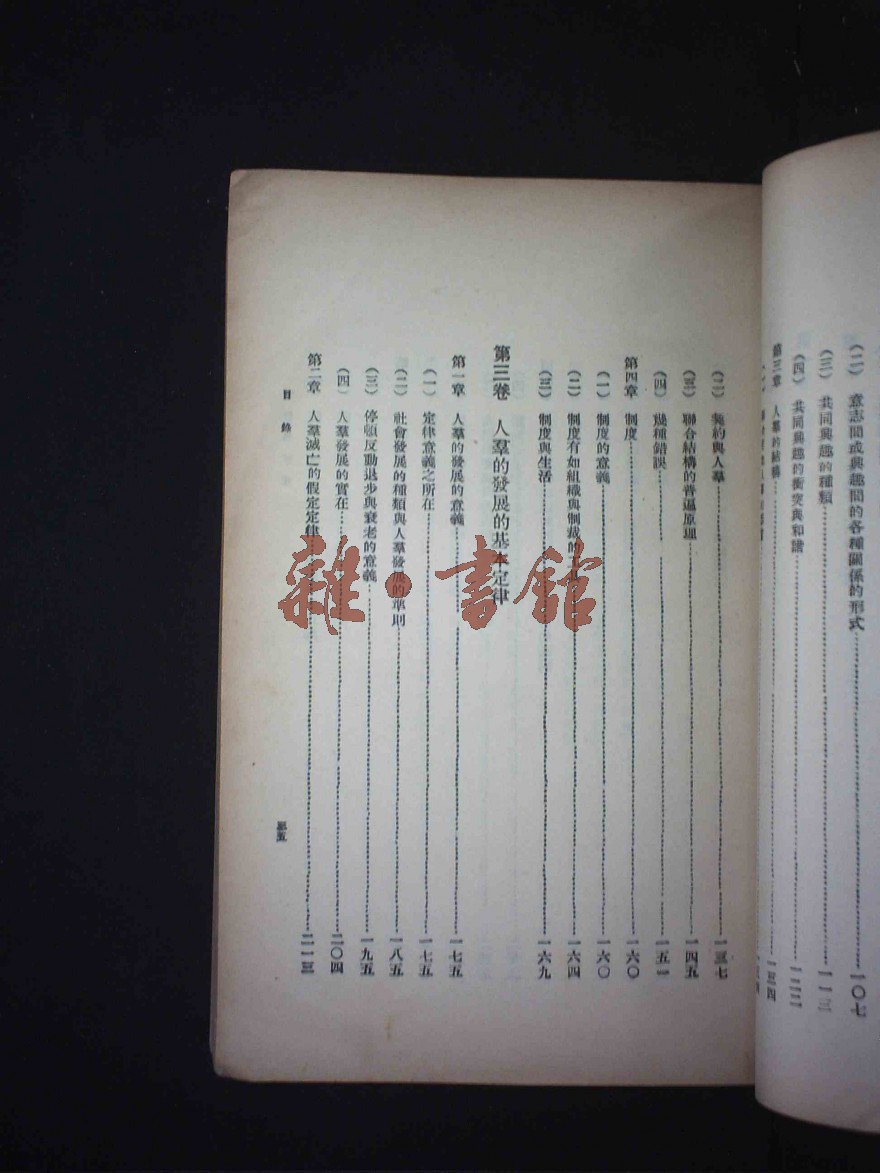 (二) 意志間或興趣間的各種關係的形式 一〇七
(三) 共同興趣的種類 一一三
(四) 共同興趣的衝突與和諧 一二二
第三章 人羣的結構 一三四
(二) 契約與人羣 一三七
(三) 聯合結構的普遍原理 一四五
(四) 幾種錯誤 一五一
第四章 制度 一六〇
(一) 制度的意義 一六〇
(二) 制度有如組織與制裁的 一六四
(三) 制度與生活 一六九
第三卷 人羣的發展的基本定律
第一章 人羣的發展的意義 一七五
(一) 定律意義之所在 一七五
(二) 社會發展的種類與人羣發展的準則 一八五
(三) 停頓反動退步與衰老的意義 一九五
(四) 人羣發展的實在 二〇四
第二章 人羣滅亡的假定定律 二一三
目錄
雜·書館